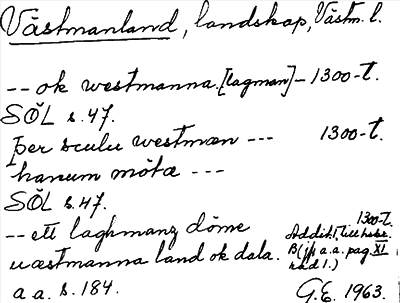 Västmanland, landskap, Västm. l.
-- ok westmanna [lagman] - 1300-t.
SÖL s. 47.
þer sculu westmæn --- 1300-t.
hanum möta ---
SÖL s. 47.
-- ett laghmanz döme 1300-t.
uæstmanna land ok dala. Addit. 1, till hskr.
B (jfr a.a. pag. XI
rad 1.)
a a. s. 184. G.E. 1963.